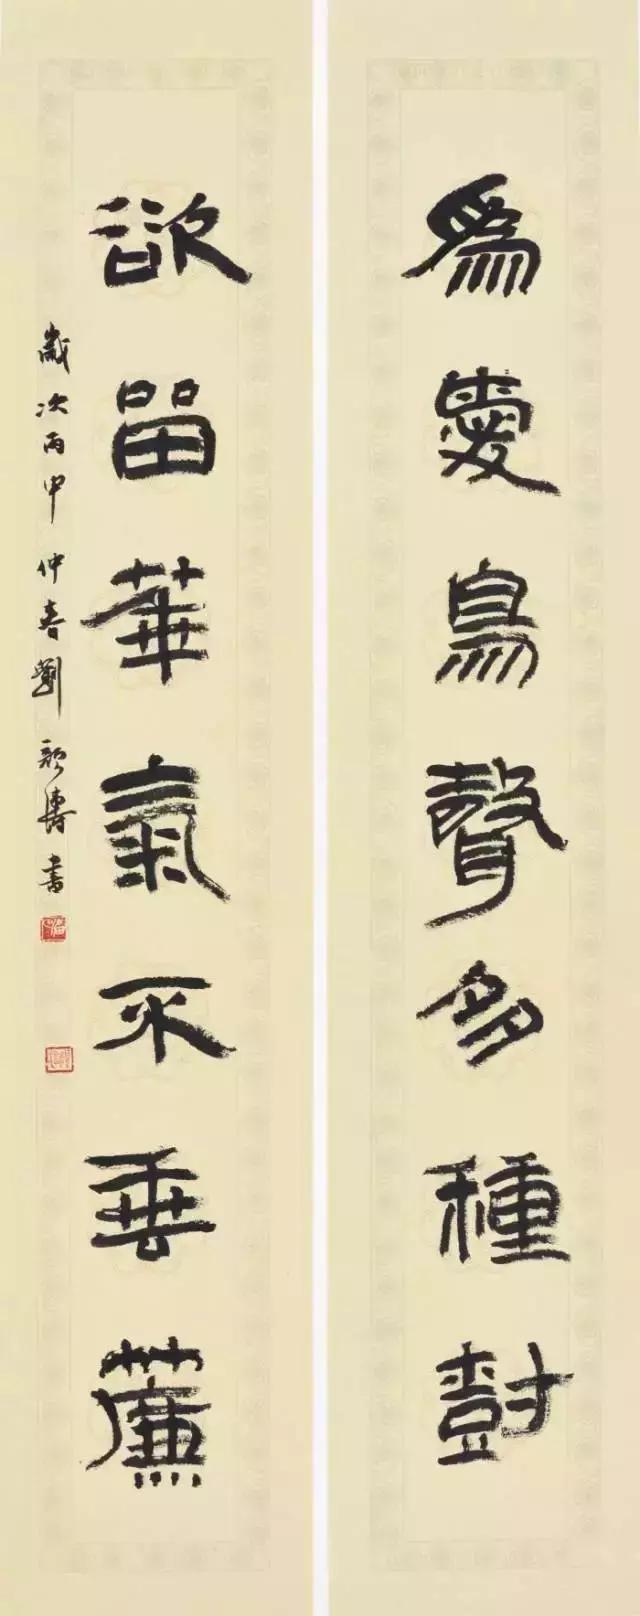 為愛鳥聲多種尌
欲留華氣不垂薕
歲次丙申仲春劉新濤書